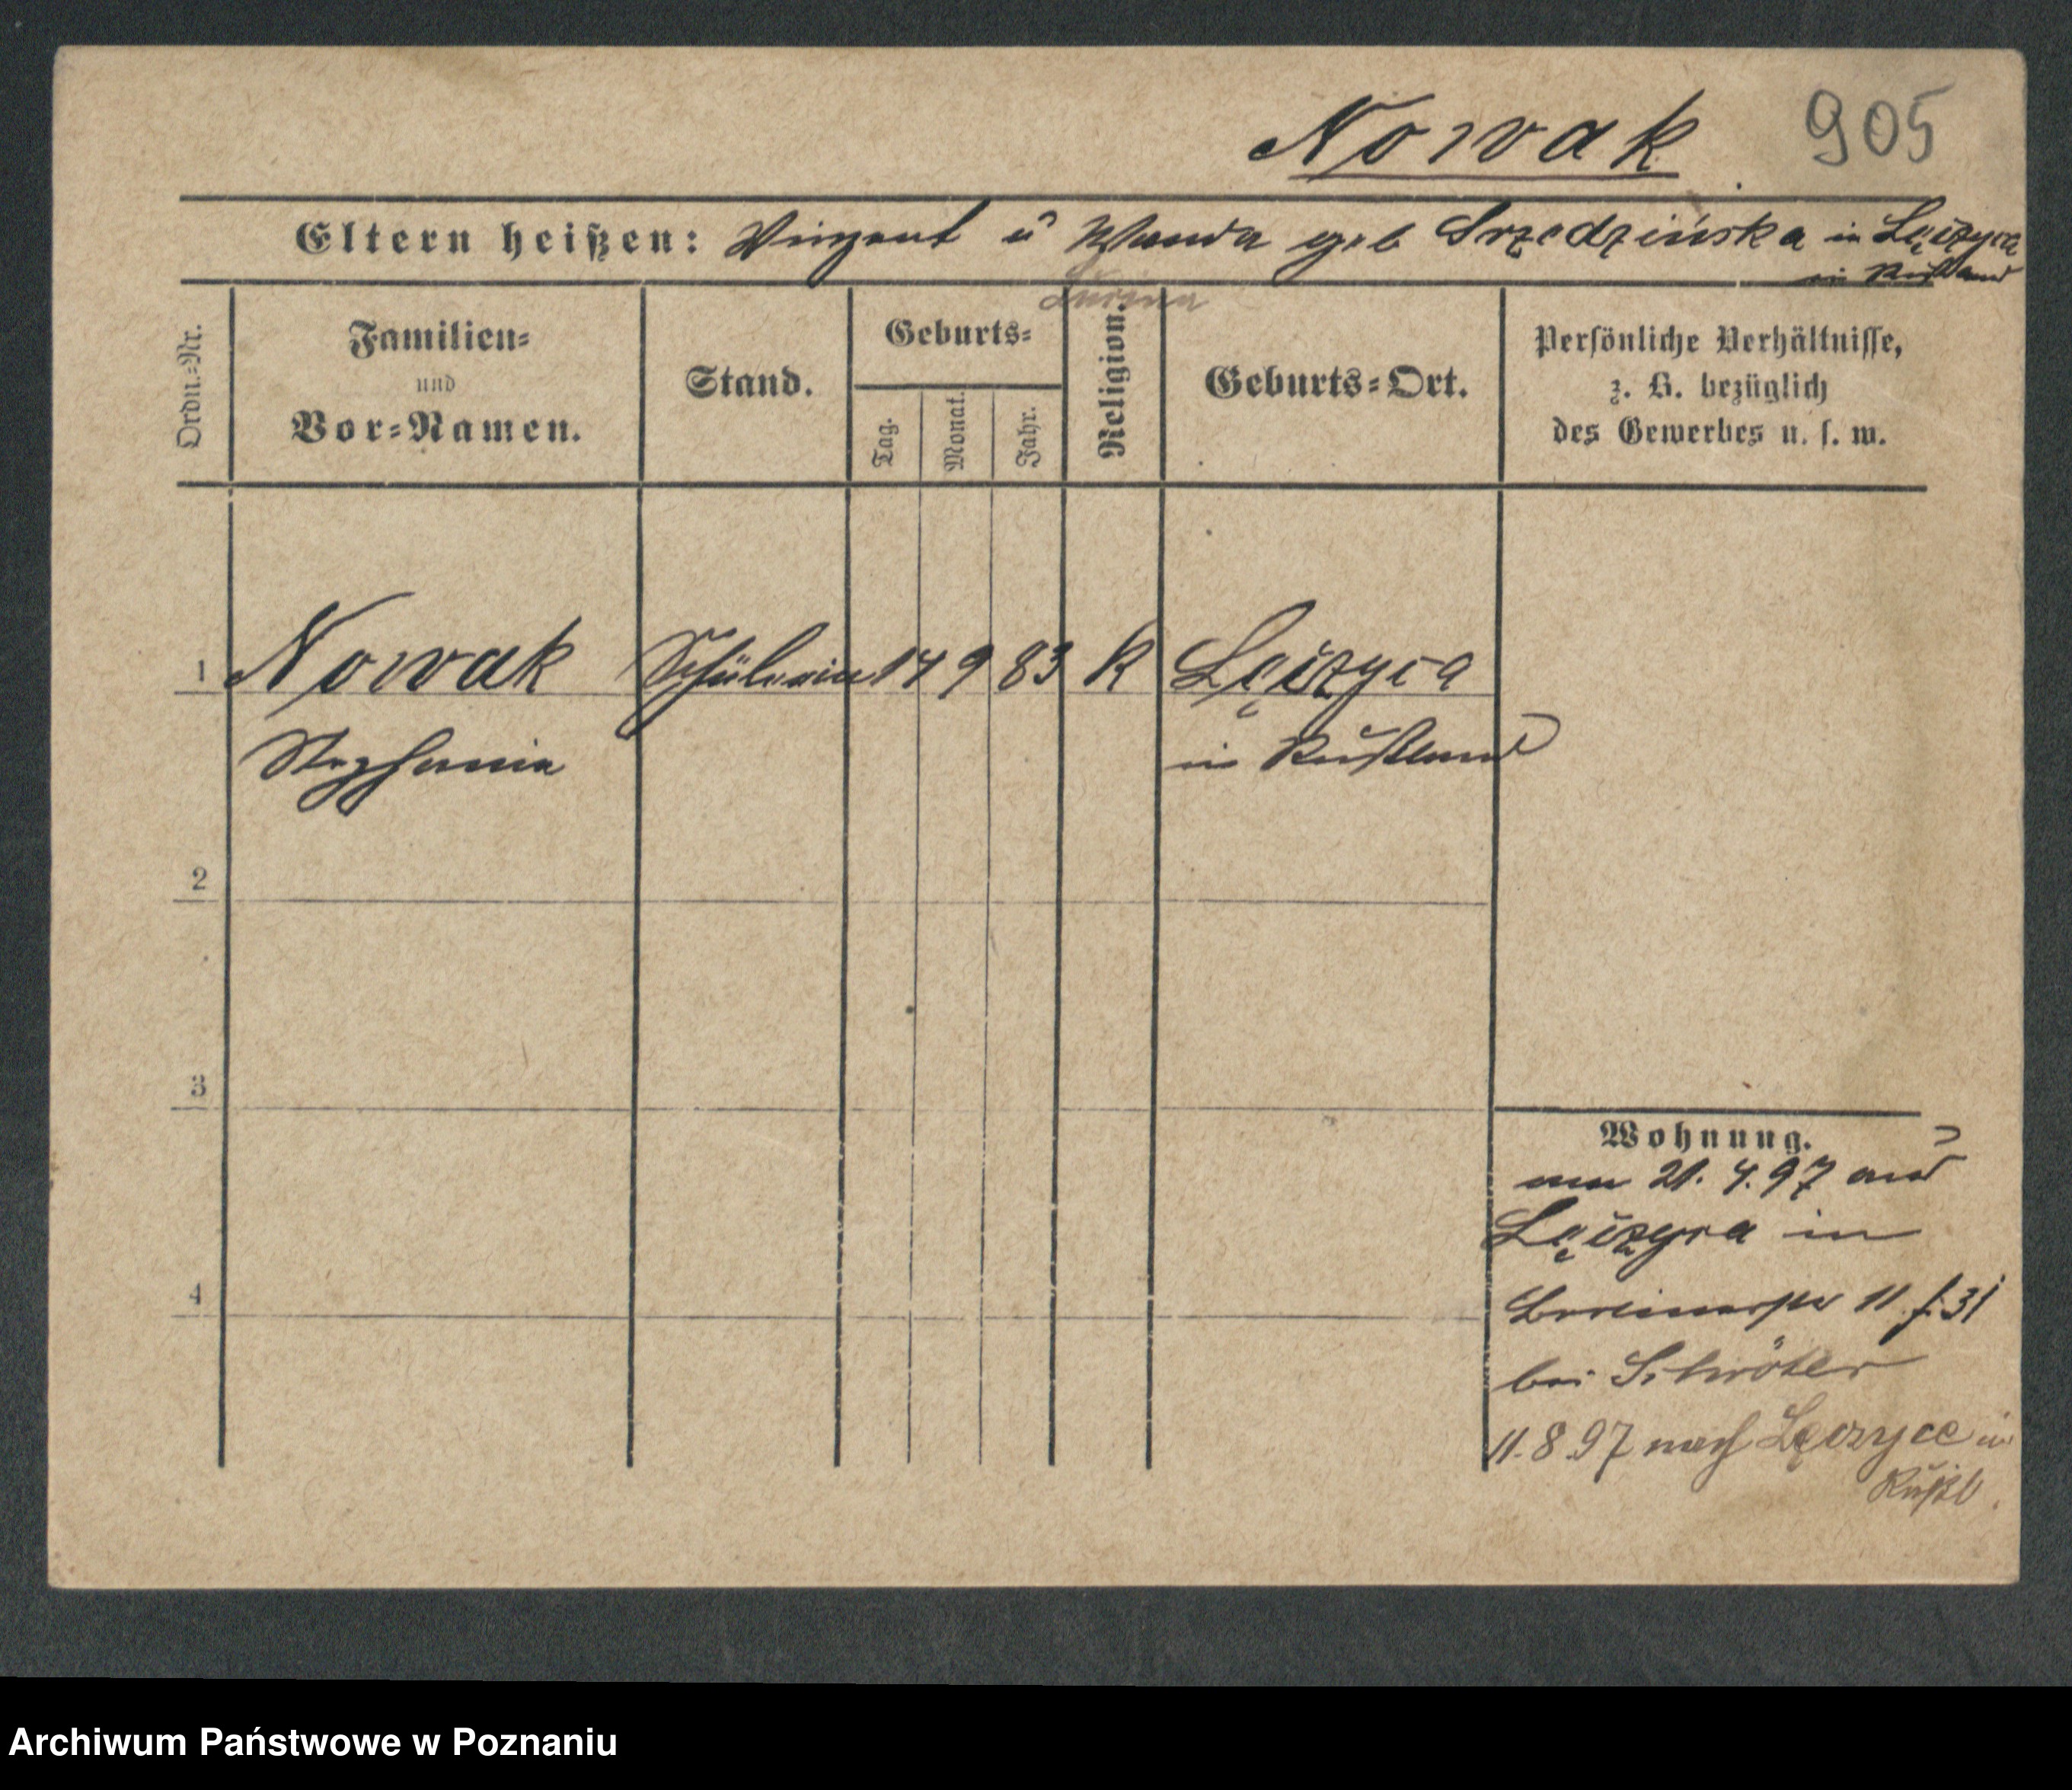 Nowak 905
Eltern heißen: Vinzent u Wanda geb Srzedzińska in Lęczyca
in Rußland
Ordn.-Nr.
Familien-
und
Vor-Namen.
Stand.
Geburts-
Tag.
Monat.
Jahr.
Religion.
Geburts-Ort.
Persönliche Verhältnisse,
z. B. bezüglich
des Gewerbes u. s. w.
1 Nowak Schülerin 14 9 83 K Lęczyca
Stephania in Rußland
2
3
4
Wohnung.
am 21. 4. 97 aus
Lęczyca in
11 31
bei Schröter
11. 8 97 nach Lęczyce in
Rußl.
Archiwum Państwowe w Poznaniu